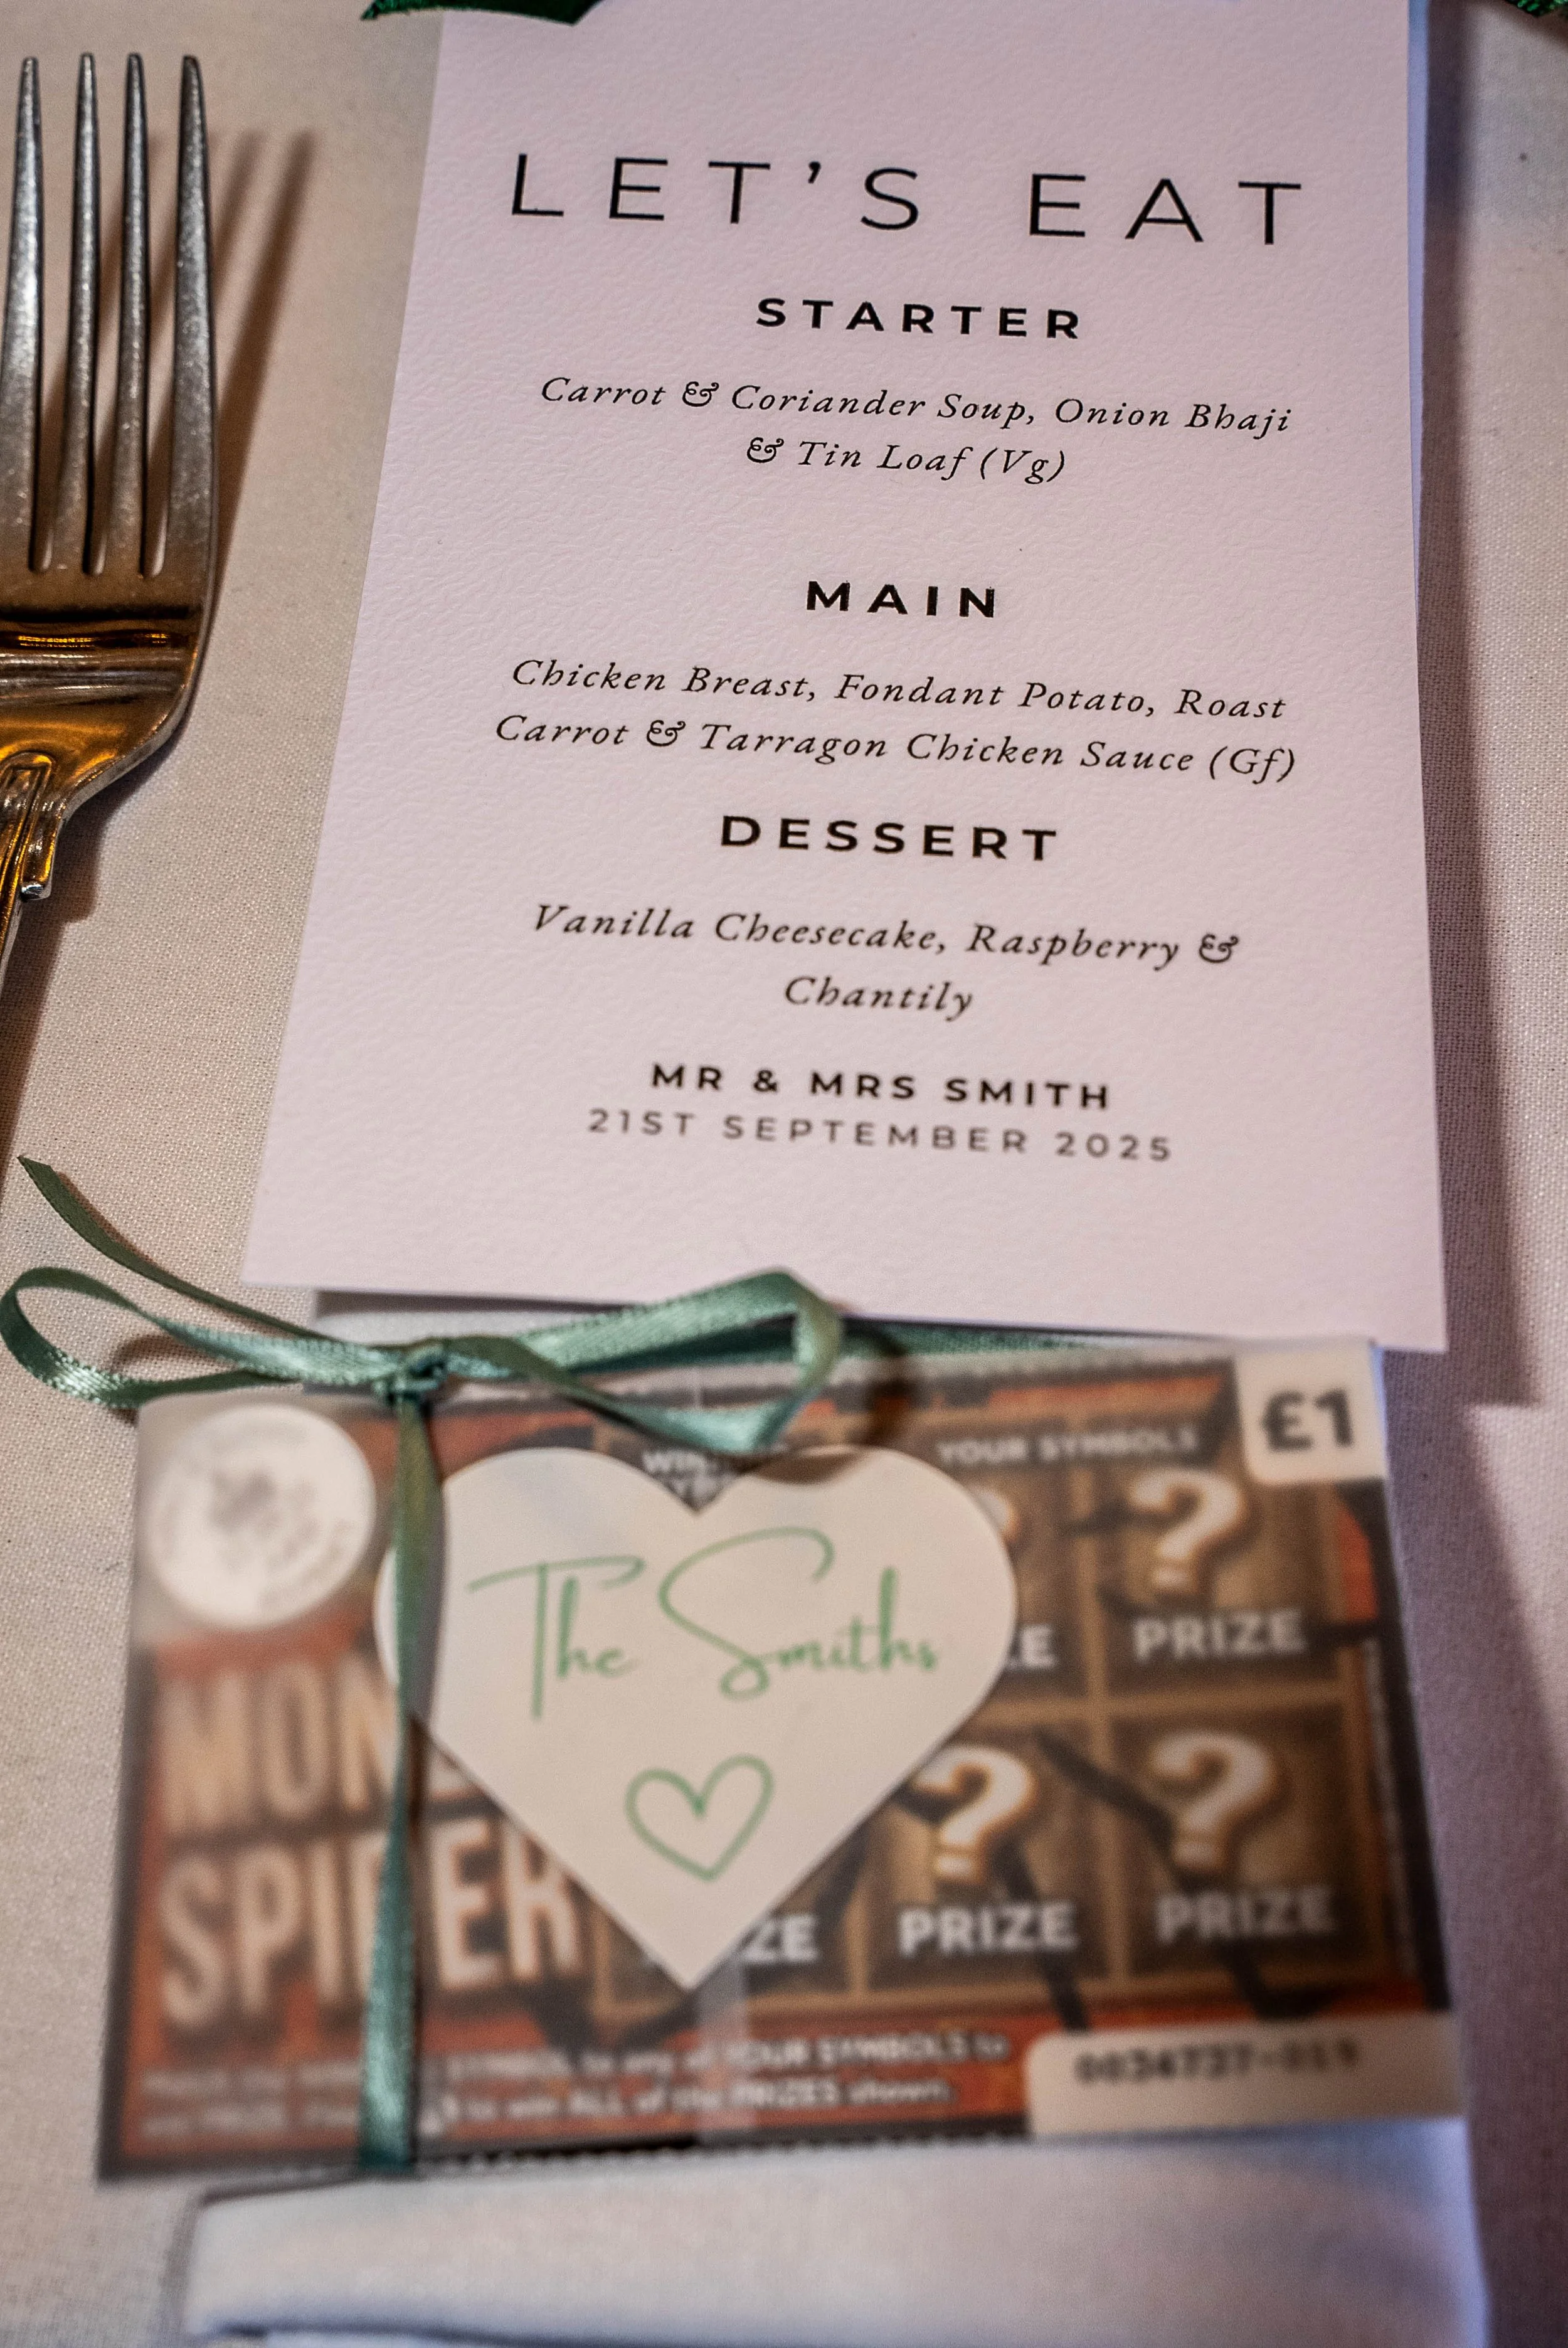 LET'S EAT
STARTER
Carrot & Coriander Soup, Onion Bhaji
& Tin Loaf (Vg)
MAIN
Chicken Breast, Fondant Potato, Roast
Carrot & Tarragon Chicken Sauce (Gf)
DESSERT
Vanilla Cheesecake, Raspberry &
Chantily
MR & MRS SMITH
21ST SEPTEMBER 2025
£1
YOUR SYMBOLS
The Smiths
PRIZE
SPIDER
PRIZE PRIZE
SYMBOL to any of YOUR SYMBOLS to
to win ALL of the PRIZES shown.